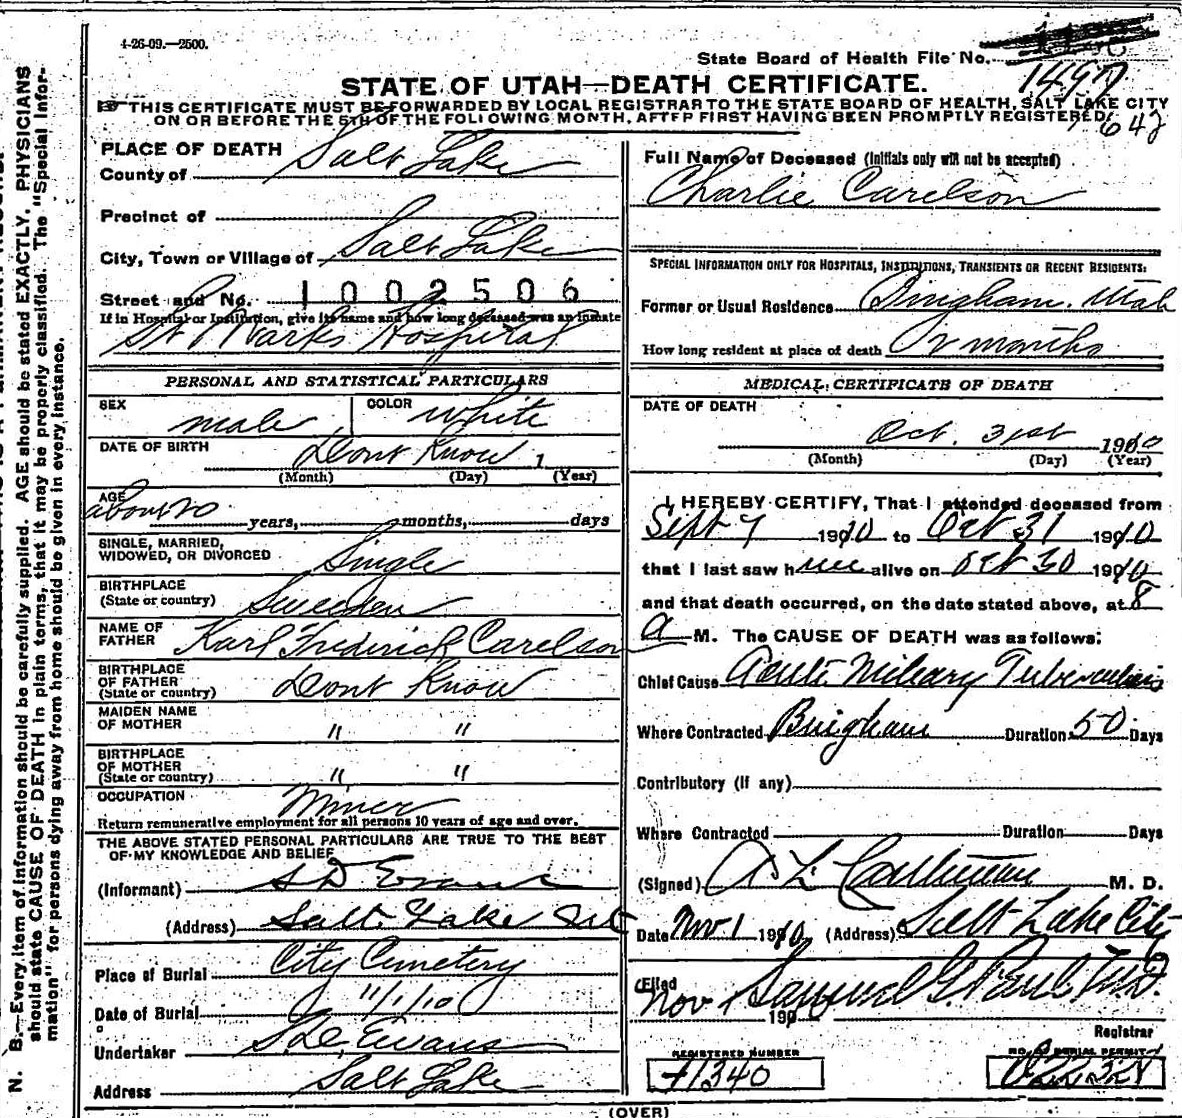 4-26-09.—2500.
State Board of Health File No.
1497
STATE OF UTAH—DEATH CERTIFICATE.
THIS CERTIFICATE MUST BE FORWARDED BY LOCAL REGISTRAR TO THE STATE BOARD OF HEALTH, SALT LAKE CITY
ON OR BEFORE THE 5TH OF THE FOLLOWING MONTH, AFTER FIRST HAVING BEEN PROMPTLY REGISTERED
PLACE OF DEATH
County of Salt Lake
Precinct of
City, Town or Village of Salt Lake
Street and No. 1002506
If in Hospital or Institution, give its name and how long deceased was an inmate
St Marks Hospital
PERSONAL AND STATISTICAL PARTICULARS
SEX male COLOR white
DATE OF BIRTH Dont Know 1
(Month) (Day) (Year)
AGE about 20 years, months, days
SINGLE, MARRIED,
WIDOWED, OR DIVORCED Single
BIRTHPLACE
(State or country) Sweden
NAME OF
FATHER Karl Frederick Carelson
BIRTHPLACE
OF FATHER
(State or country) Dont Know
MAIDEN NAME
OF MOTHER " "
BIRTHPLACE
OF MOTHER
(State or country) " "
OCCUPATION Miner
Return remunerative employment for all persons 10 years of age and over.
THE ABOVE STATED PERSONAL PARTICULARS ARE TRUE TO THE BEST
OF MY KNOWLEDGE AND BELIEF
(Informant) S D Evans
(Address) Salt Lake
Place of Burial City Cemetery
Date of Burial 11/1/10
Undertaker S. D. Evans
Address Salt Lake
Full Name of Deceased (Initials only will not be accepted)
Charlie Carelson
SPECIAL INFORMATION ONLY FOR HOSPITALS, INSTITUTIONS, TRANSIENTS OR RECENT RESIDENTS:
Former or Usual Residence Bingham. Utah
How long resident at place of death 2 months
MEDICAL CERTIFICATE OF DEATH
DATE OF DEATH
Oct. 31st 1910
(Month) (Day) (Year)
I HEREBY CERTIFY, That I attended deceased from
Sept 7 1910 to Oct 31 1910
that I last saw him alive on Oct 30 1910
and that death occurred, on the date stated above, at 8
a M. The CAUSE OF DEATH was as follows:
Chief Cause Acute Miliary Tuberculosis
Where Contracted Bingham Duration 50 Days
Contributory (if any)
Where Contracted Duration Days
(Signed) M. D.
Date Nov 1 1910 (Address) Salt Lake City
Filed
Nov 1 190 Samuel G. Paul, M.D.
Registrar
REGISTERED NUMBER
1340
NO. OF BURIAL PERMIT
(OVER)
N. B.—Every item of information should be carefully supplied. AGE should be stated EXACTLY. PHYSICIANS
should state CAUSE OF DEATH in plain terms, that it may be properly classified. The "Special Infor-
mation" for persons dying away from home should be given in every instance.